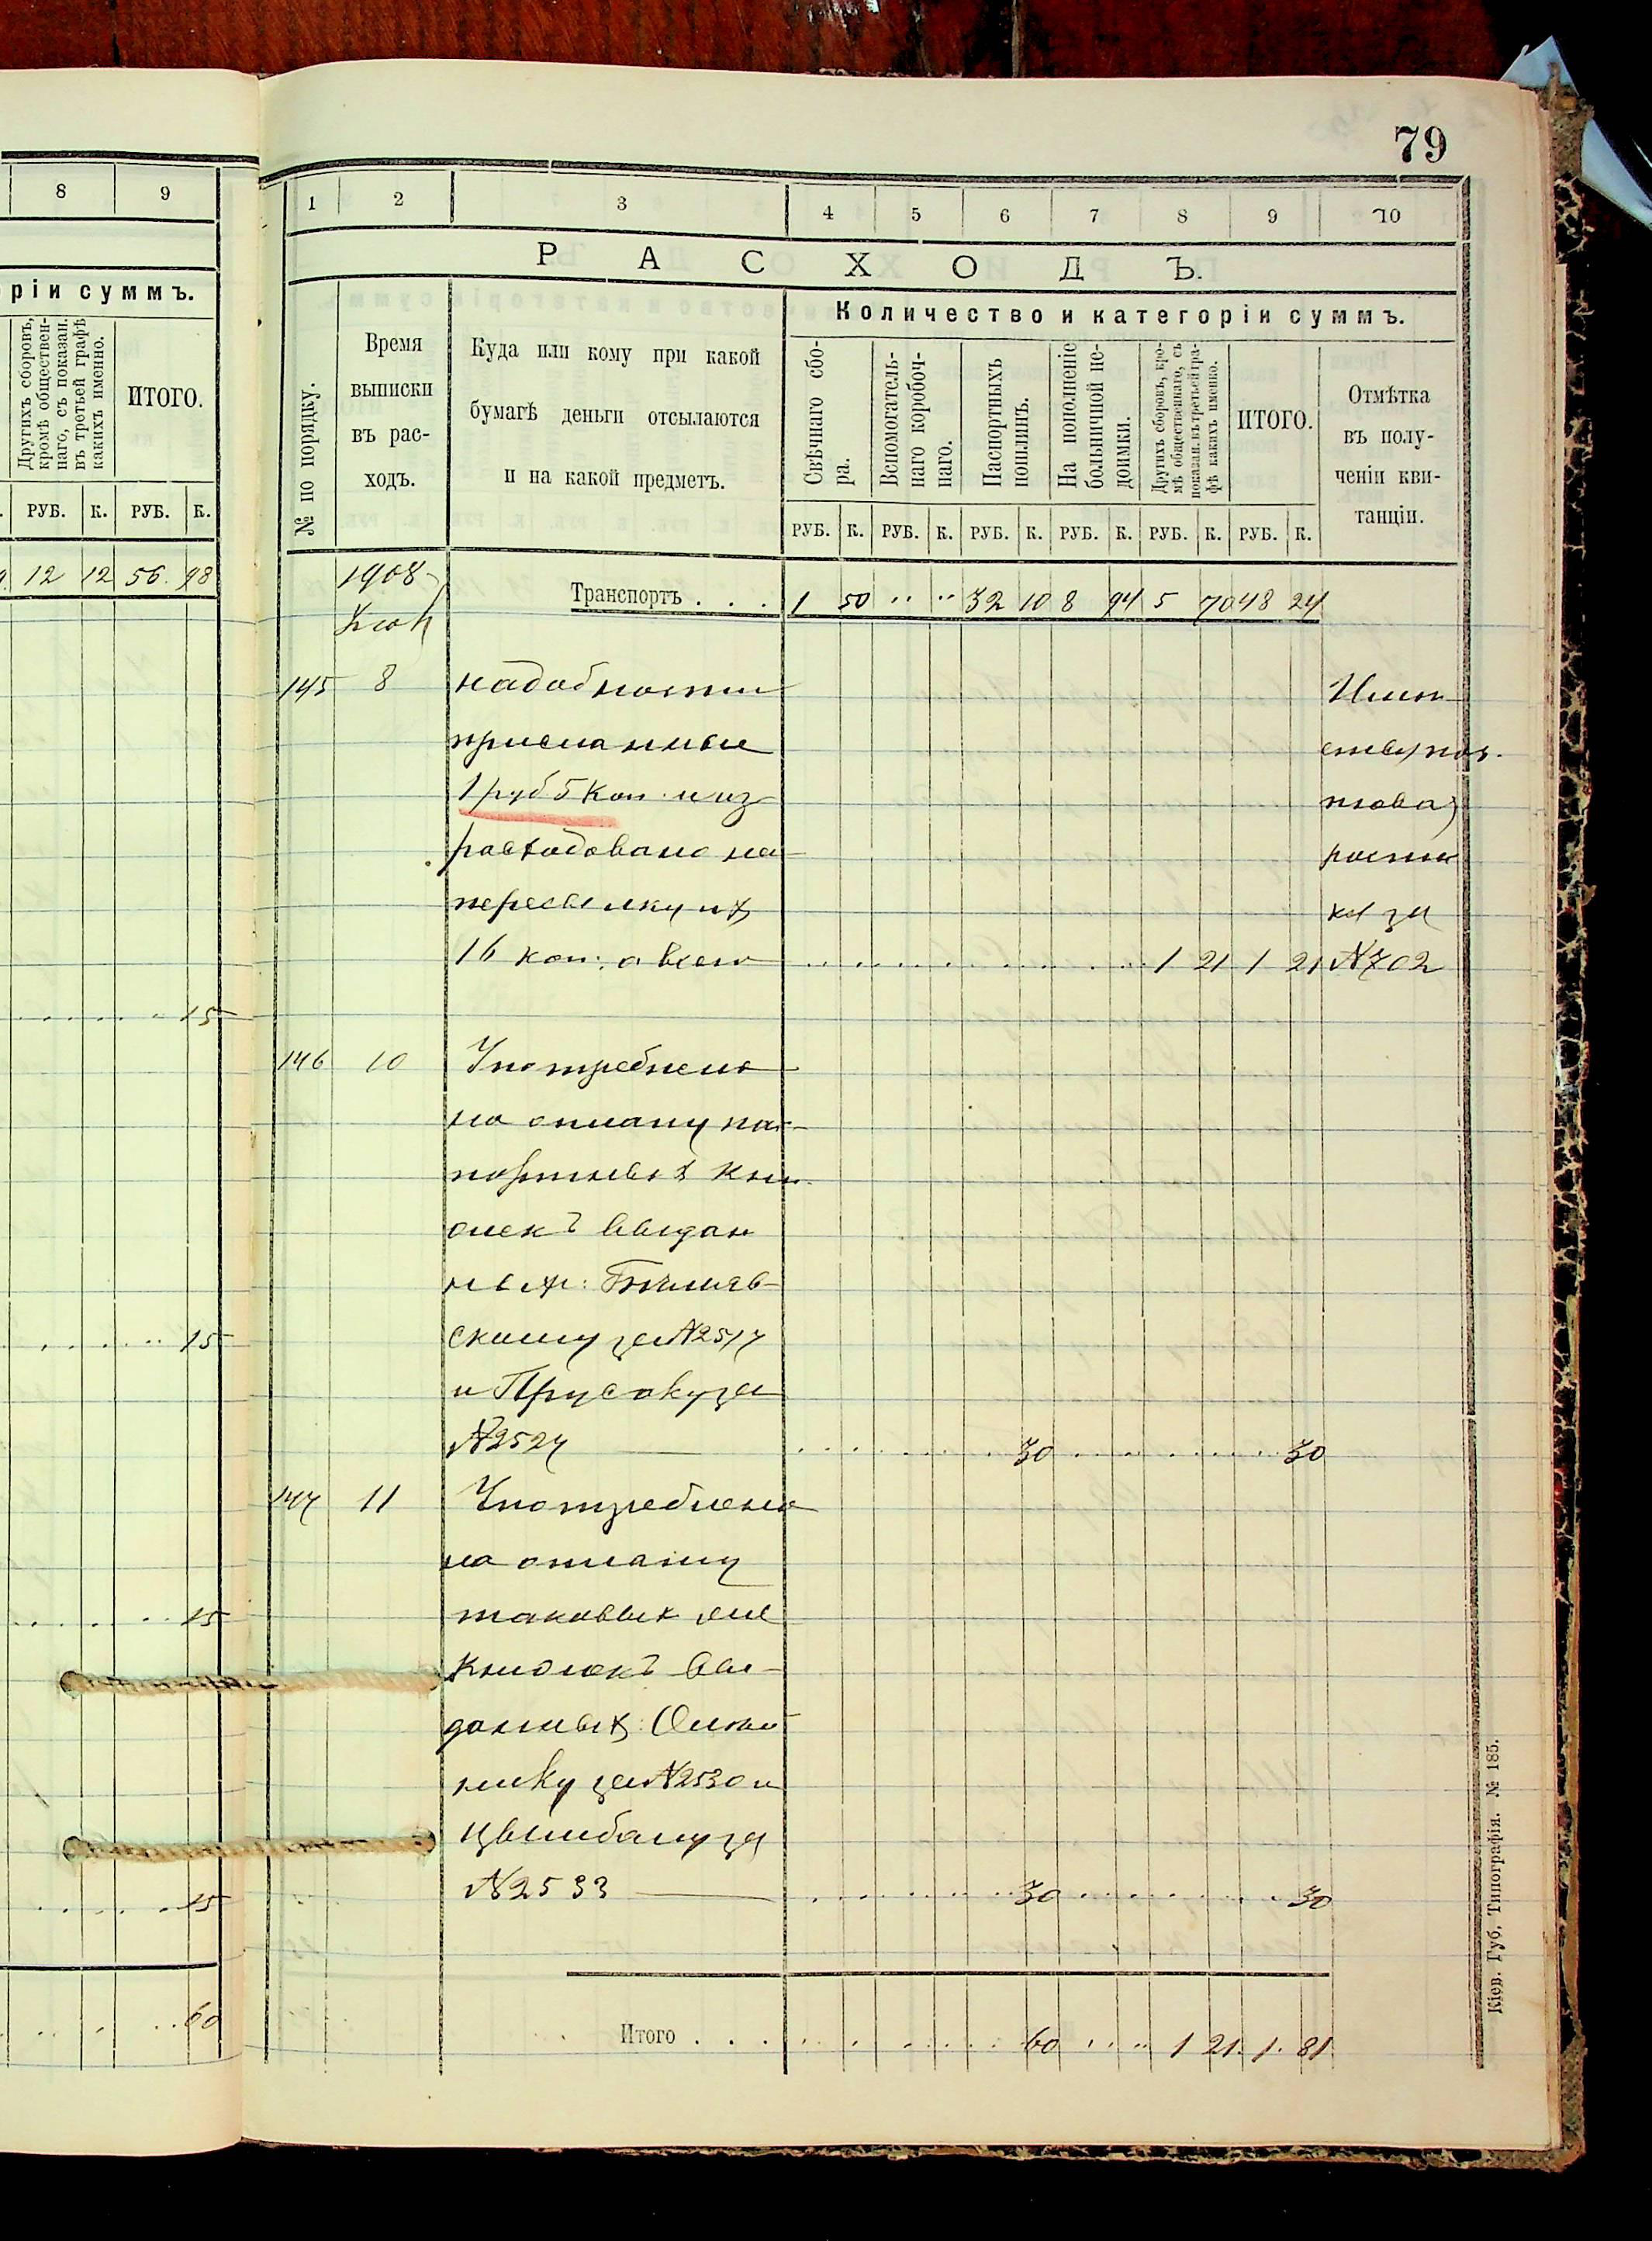 79
8 9
ріи суммъ.
Другихъ сборовъ,
кромѣ обществен-
наго, съ показан.
въ третьей графѣ
какихъ именно.
ИТОГО.
РУБ. К. РУБ. К.
12 12 56. 98
15
15
15
15
60
1 2 3 4 5 6 7 8 9 10
РАСХОДЪ.
№ по порядку.
Время
выписки
въ рас-
ходъ.
Куда или кому при какой
бумагѣ деньги отсылаются
и на какой предметъ.
Количество и категоріи суммъ.
Свѣчнаго сбо-
ра.
Вспомогатель-
наго коробоч-
наго.
Паспортныхъ
пошлинъ.
На пополненіе
больничной не-
доимки.
Другихъ сборовъ, кро-
мѣ общественнаго, съ
показан. въ третьей гра-
фѣ какихъ именно.
ИТОГО.
Отмѣтка
въ полу-
ченіи кви-
танціи.
РУБ. К. РУБ. К. РУБ. К. РУБ. К. РУБ. К. РУБ. К.
1908
Транспортъ . . . 1 50 " " 32 10 8 94 5 70 48 24
145 8 надобности
присланные
1 руб 5 коп. и из
расходовано на
пересылку их
16 коп: а всего 1 21 1 21 №702
роспи
ка за
146 10 Употреблено
на оплату пас-
портных кни
жекъ выдан
ных:
скому за №2517
и Прусаку за
№2527 30 30
147 11 Употреблено
на оплату
таковых же
книжекъ вы-
данных:
нику за №2530 и
Цвинбаму за
№2533 30 30
Итого . . . 60 1 21. 1. 81
Кіев. Губ. Типографія. № 185.